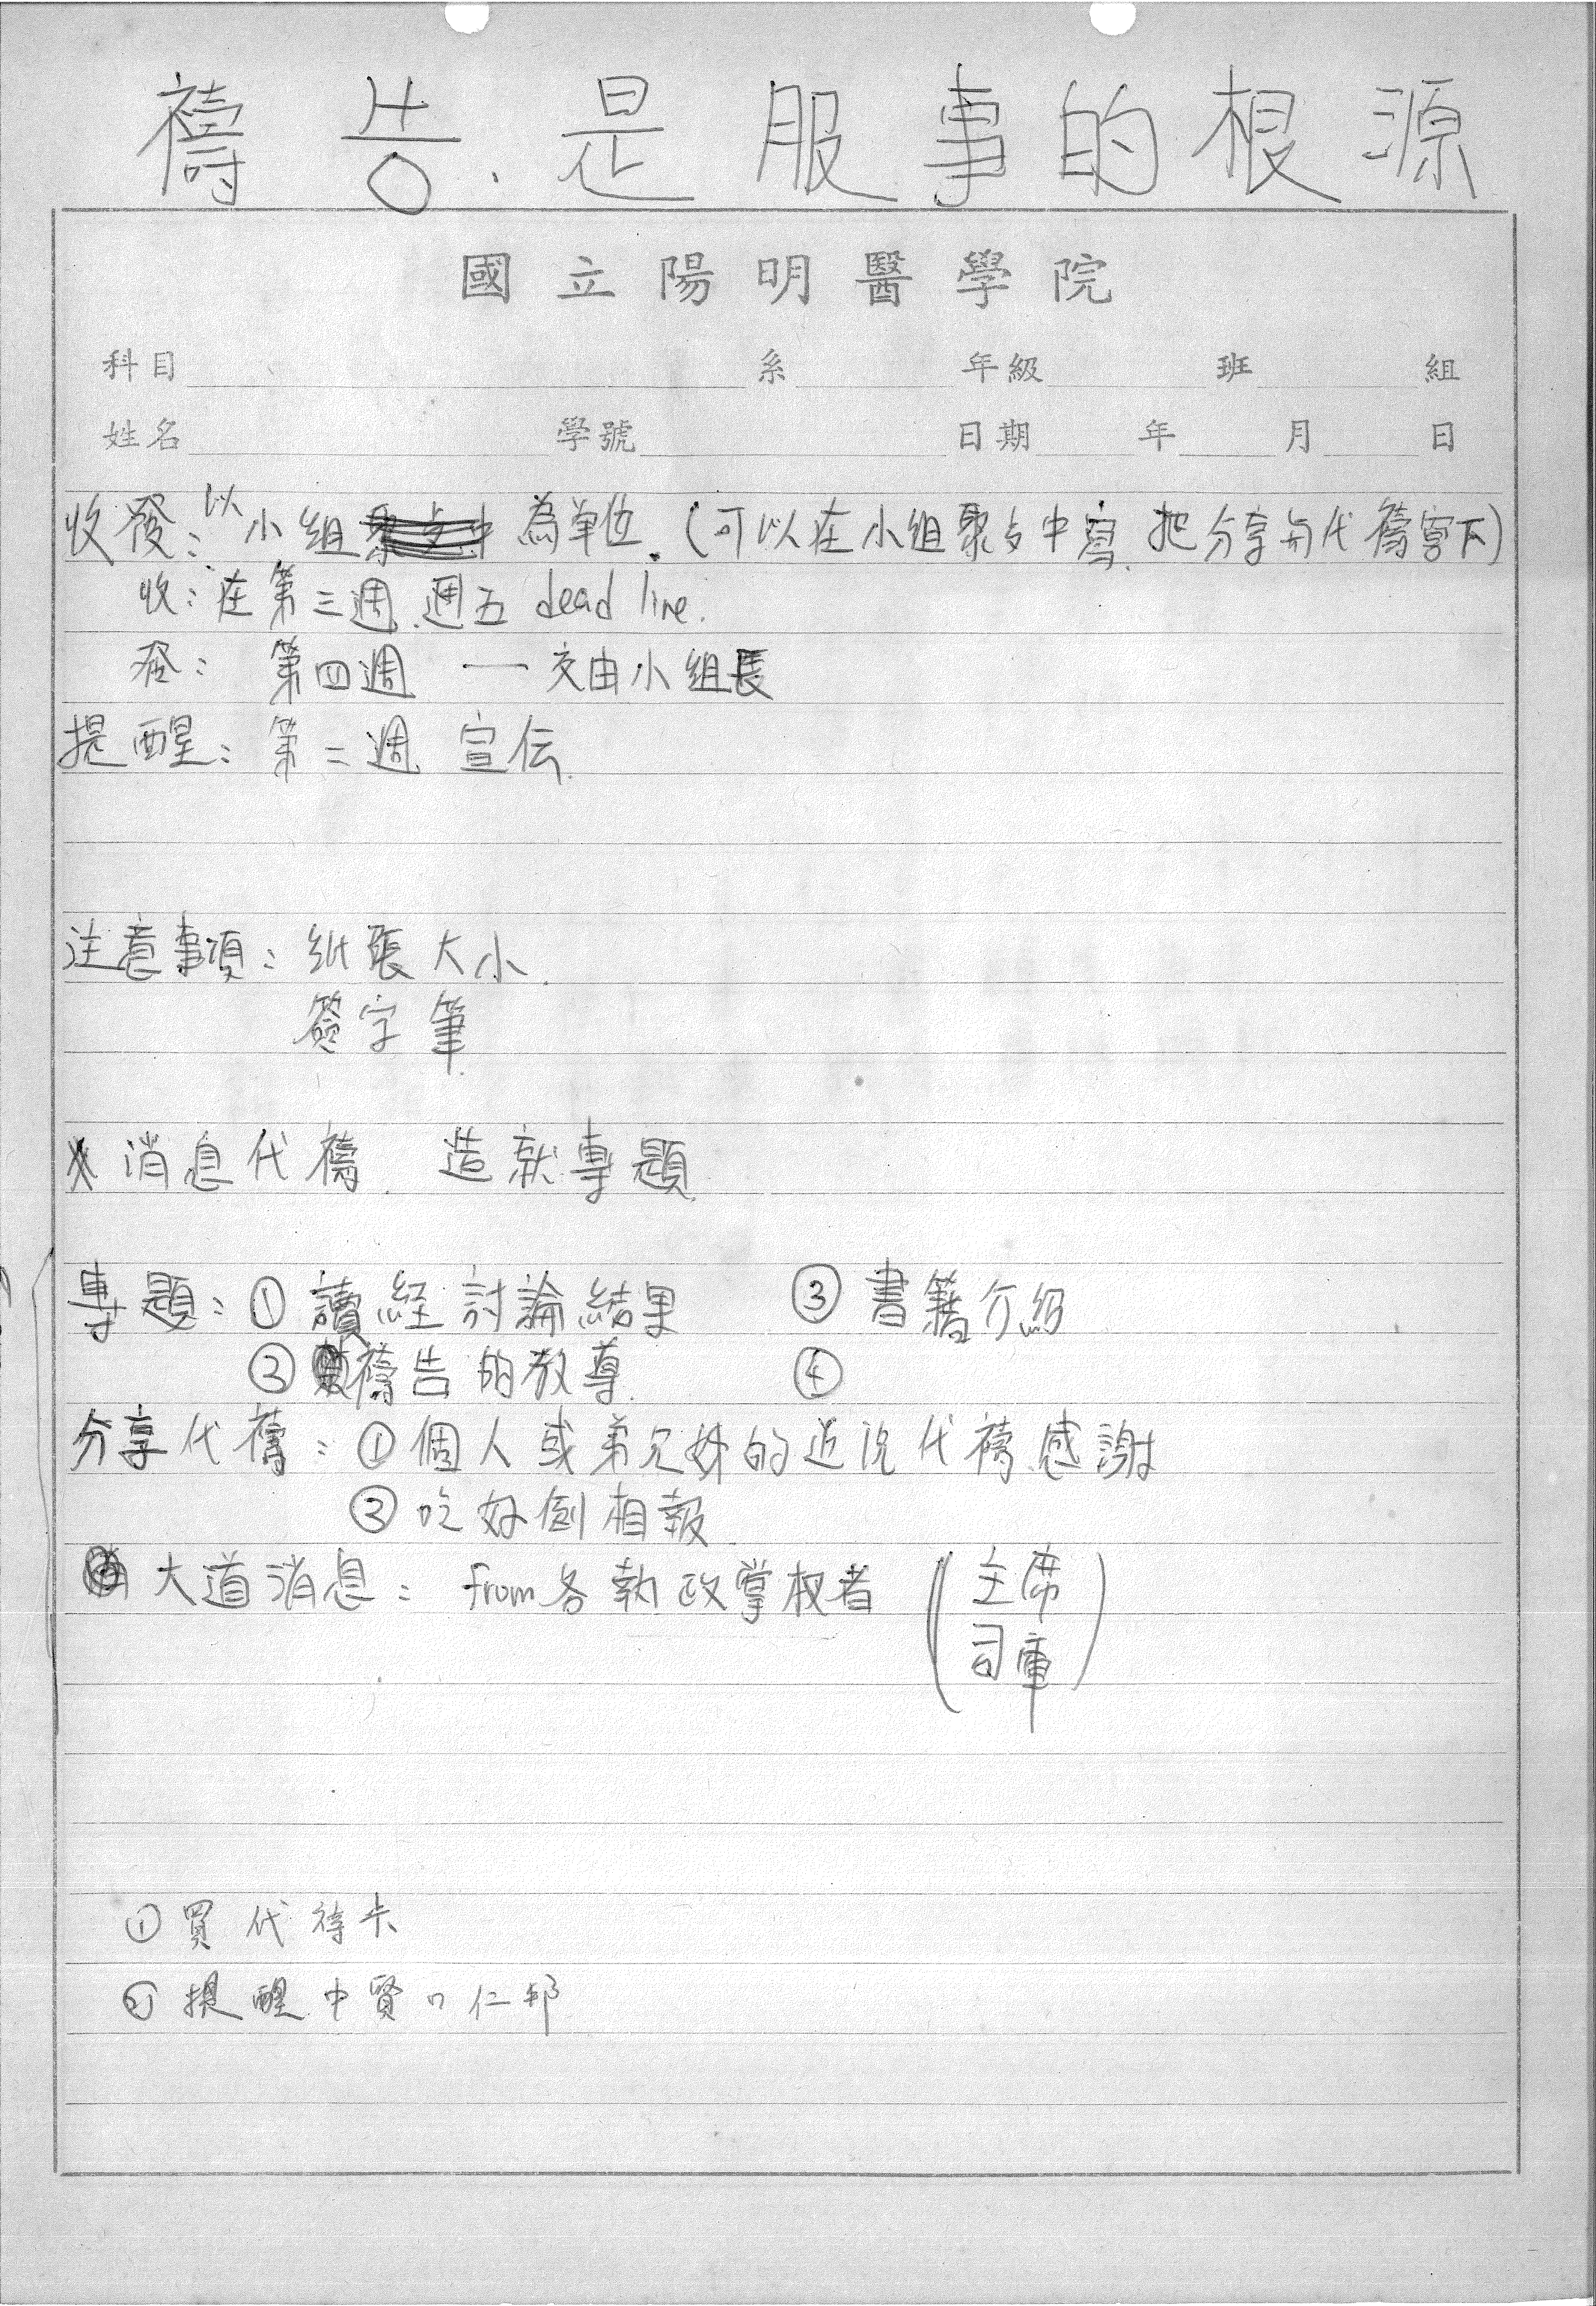 禱告是服事的根源
國立陽明醫學院
科目 系 年級 班 組
姓名 學號 日期 年 月 日
收發：以小組為單位．(可以在小組聚会中寫．把分享与代禱写下)
收：在第三週．週五 dead line．
發： 第四週 一 交由小組長
提醒：第二週 宣伝．
注意事項：紙張大小．
簽字筆．
消息代禱．造就專題
專題：① 讀経討論結果 ③ 書籍介紹
② 禱告的教導． ④
分享代禱：① 個人或弟兄姊的近況代禱．感謝
② 吃好倒相報
大道消息： from各執政掌权者 (主席
司庫)
① 買代禱卡
② 提醒中賢 仁邦